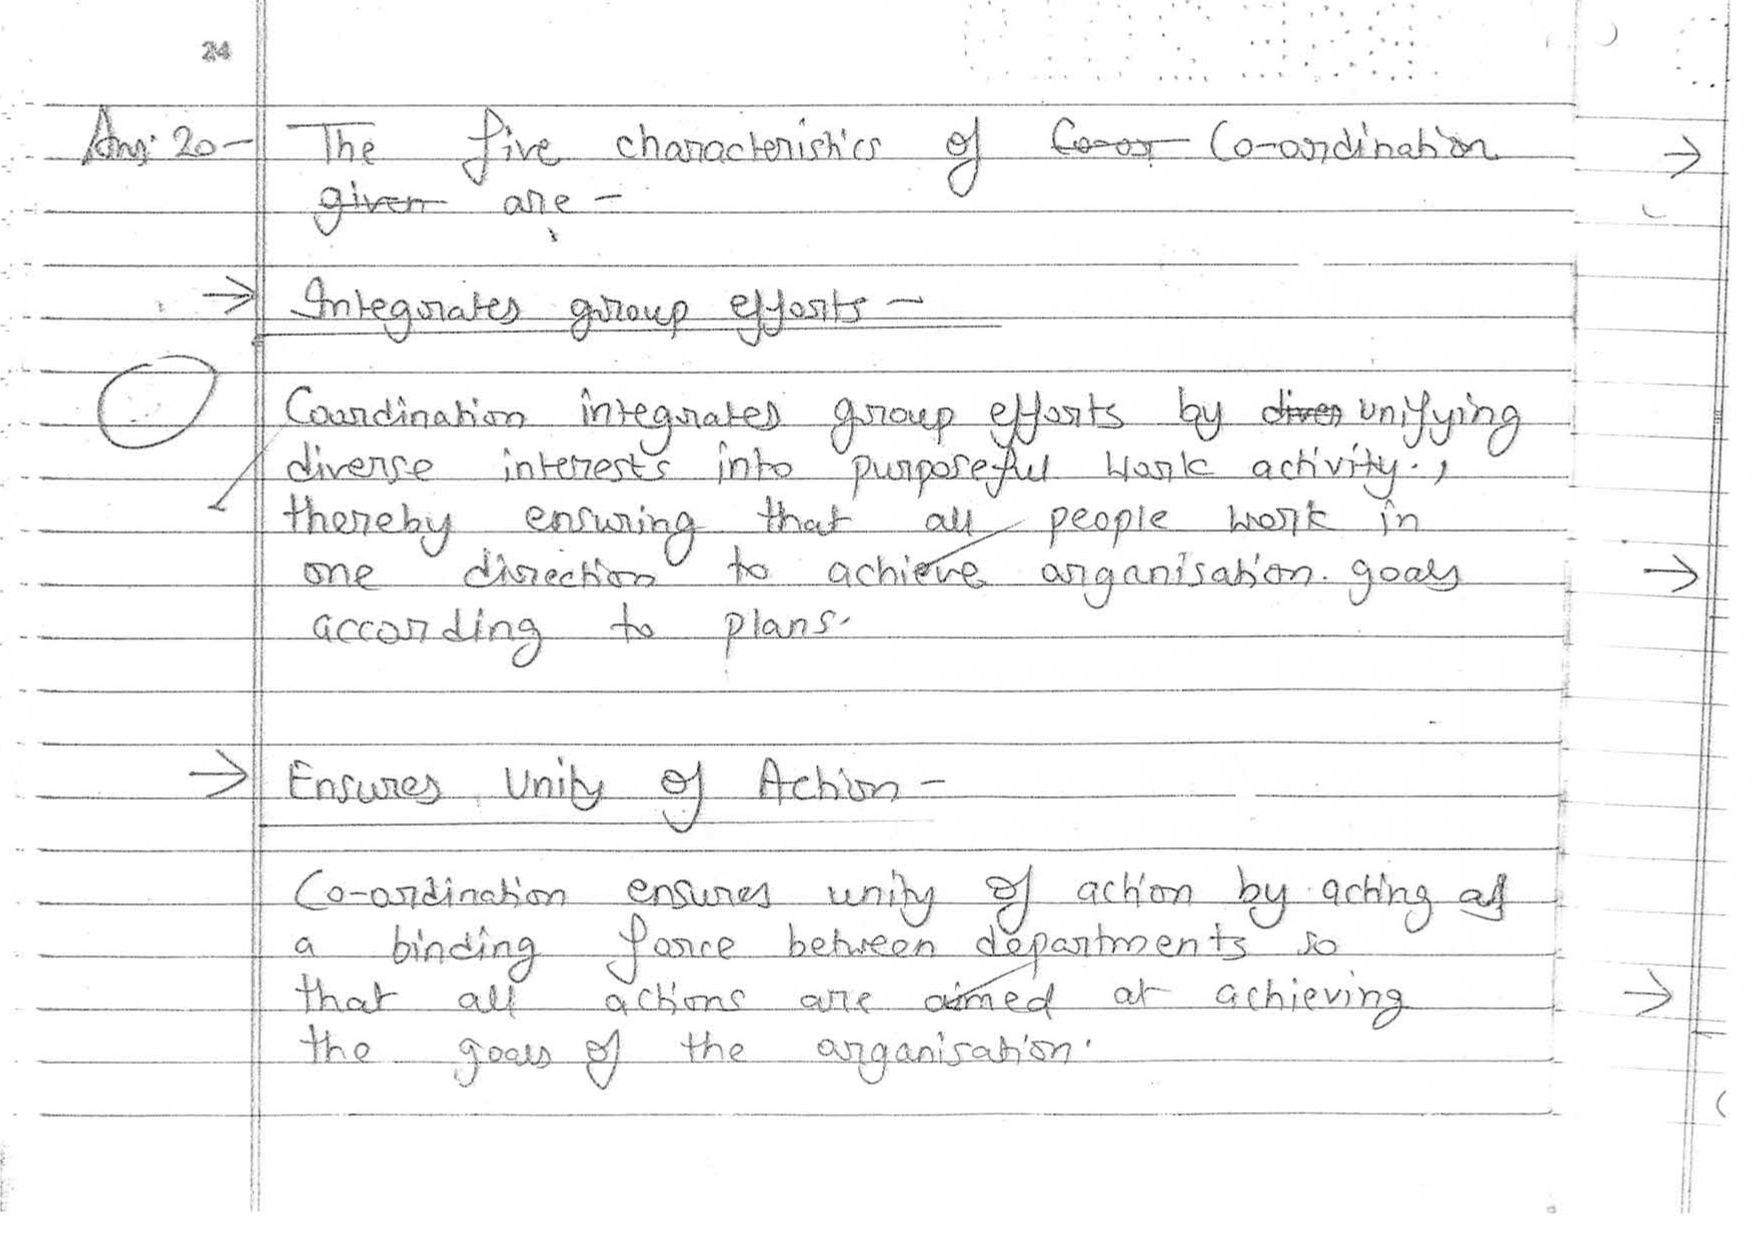 24
Ans: 20- The five characteristics of Co-or Co-ordination
given are -
→ Integrates group efforts -
Coordination integrates group efforts by divers unifying
diverse interests into purposeful work activity.,
thereby ensuring that all people work in
one direction to achieve organisation goals
according to plans.
→ Ensures Unity of Action -
Co-ordination ensures unity of action by acting as
a binding force between departments so
that all actions are aimed at achieving
the goals of the organisation.